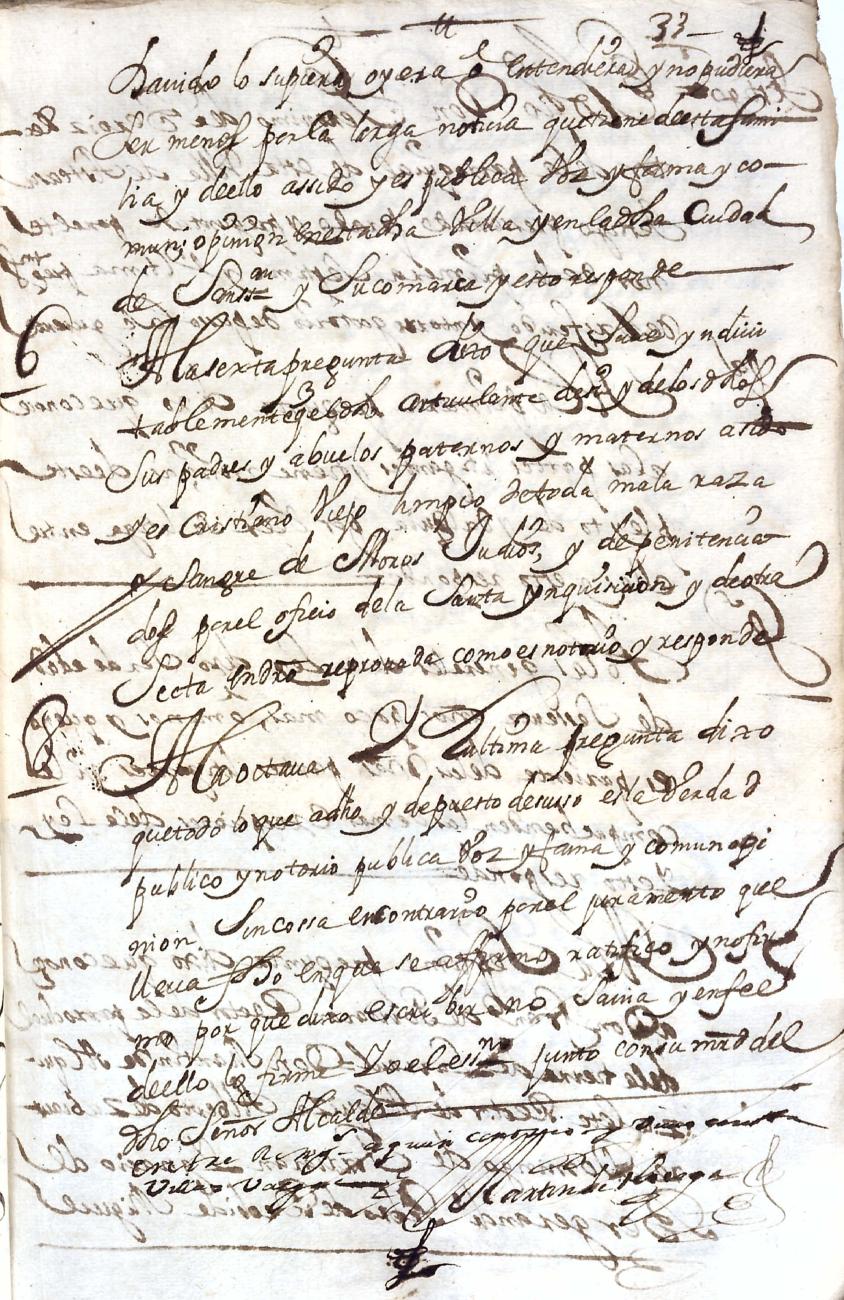 33
havido lo supiera oyera o entendiera y no pudiera
ser menos por la larga noticia que tiene de esta fami
lia, y de ello a ssido y es publica Voz y fama y co
mun opinion en esta dha Villa y en la dha Ciudad
de y su comarca y esto responde
6
A la sexta pregunta dixo que save yndivi
tablemente que el dho articulante desn.º y de los dhos
sus padres y abuelos paternos y maternos a sido
y es Cristiano Viejo limpio de toda mala raza
y sangre de Moros Judios, y de penitencia
dos por el oficio de la Santa ynquisicion y de otra
Secta reprovada como es notorio y responde
8
A la octava y Vltima pregunta dixo
que todo lo que a dho y depuesto de suso es la Verdad
publico y notorio publica Voz y fama y comun opi
nion Sin cossa en contrario por el juramento que
lleva fho en que se afirmo ratifico y no fir
mo por que dixo escribir no Savia y en fee
de ello lo firme Yo el essno junto con su mrd del
dho Señor Alcalde
entre Reng.s
Martin de